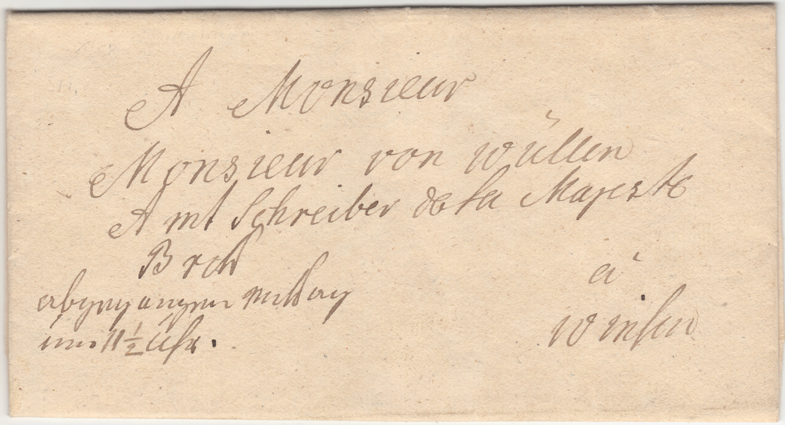 A Monsieur
Monsieur von Wüllen
Amt Schreiber de sa Majesté
Brck
à
abgegangen
um 11 1/2 Uhr.
Winsen